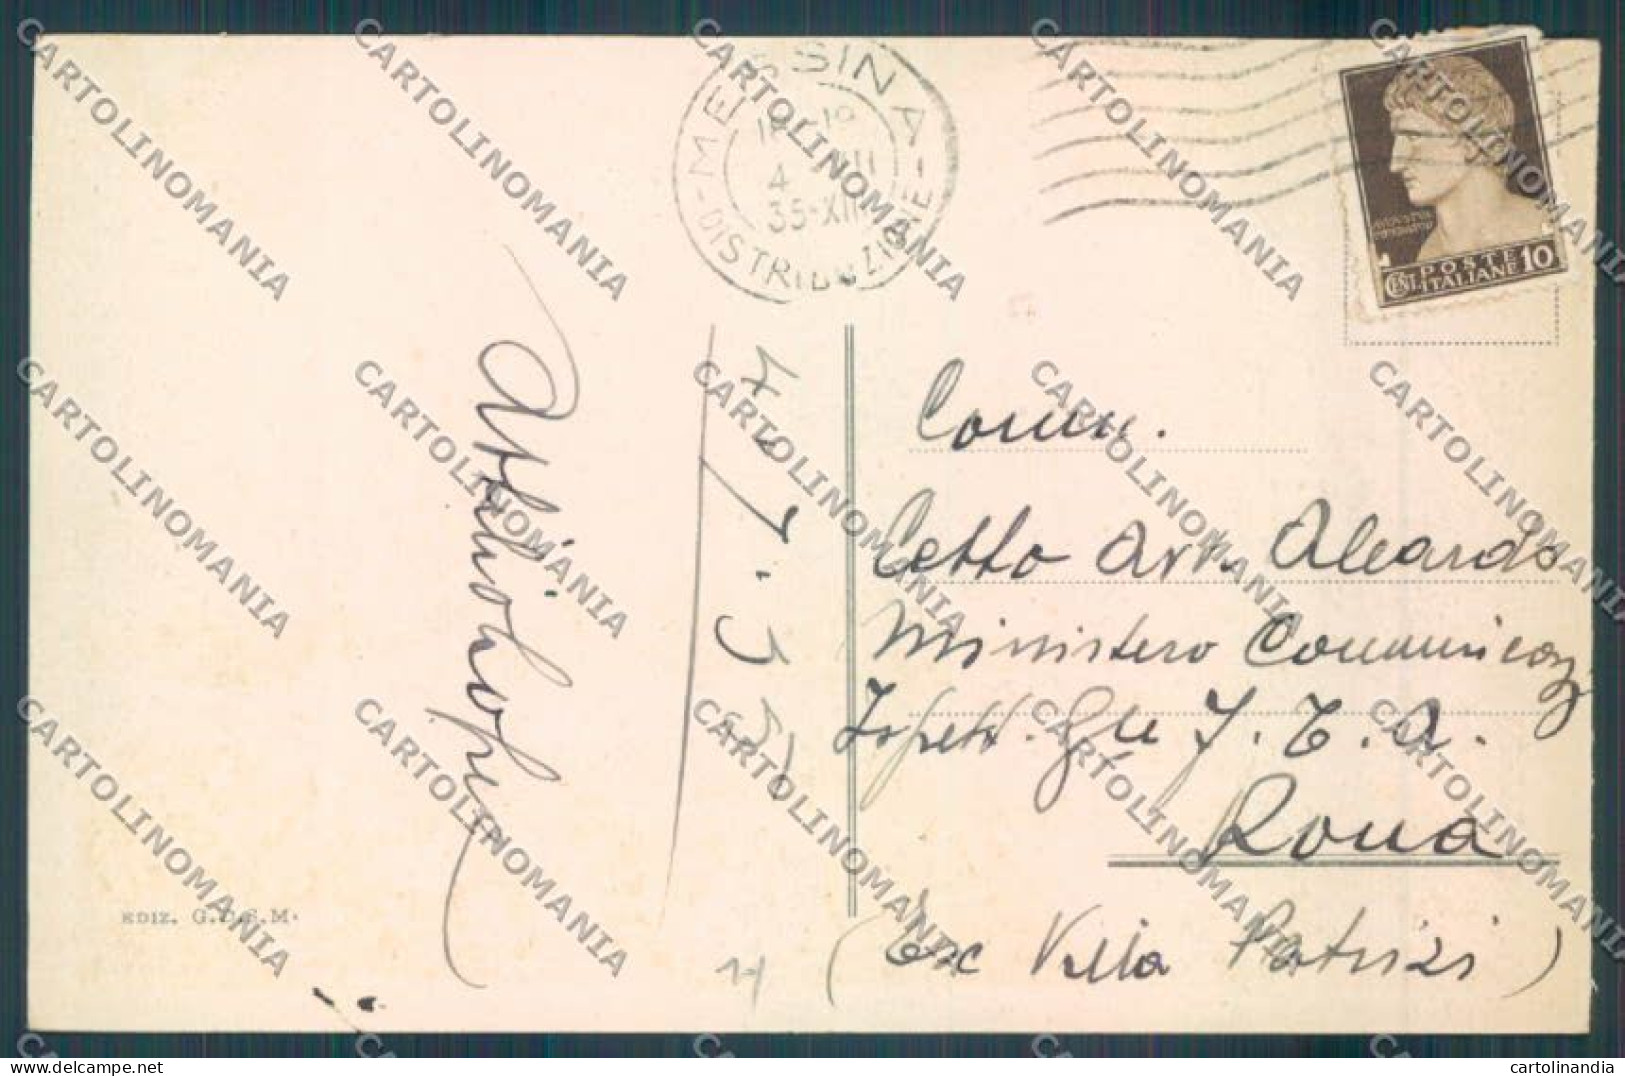 MESSINA
4
35-XIII
-DISTRIBUZIONE-
POSTE
CENT. ITALIANE 10
4-7-35
Comm.
Cetto Avv. Aleardo
Ministero Comunicaz
Ispett. Gle F. T. A.
Roma
(Ex Villa Patrizi)
EDIZ. G.D.S.M.
CARTOLINOMANIA
cartolinandia